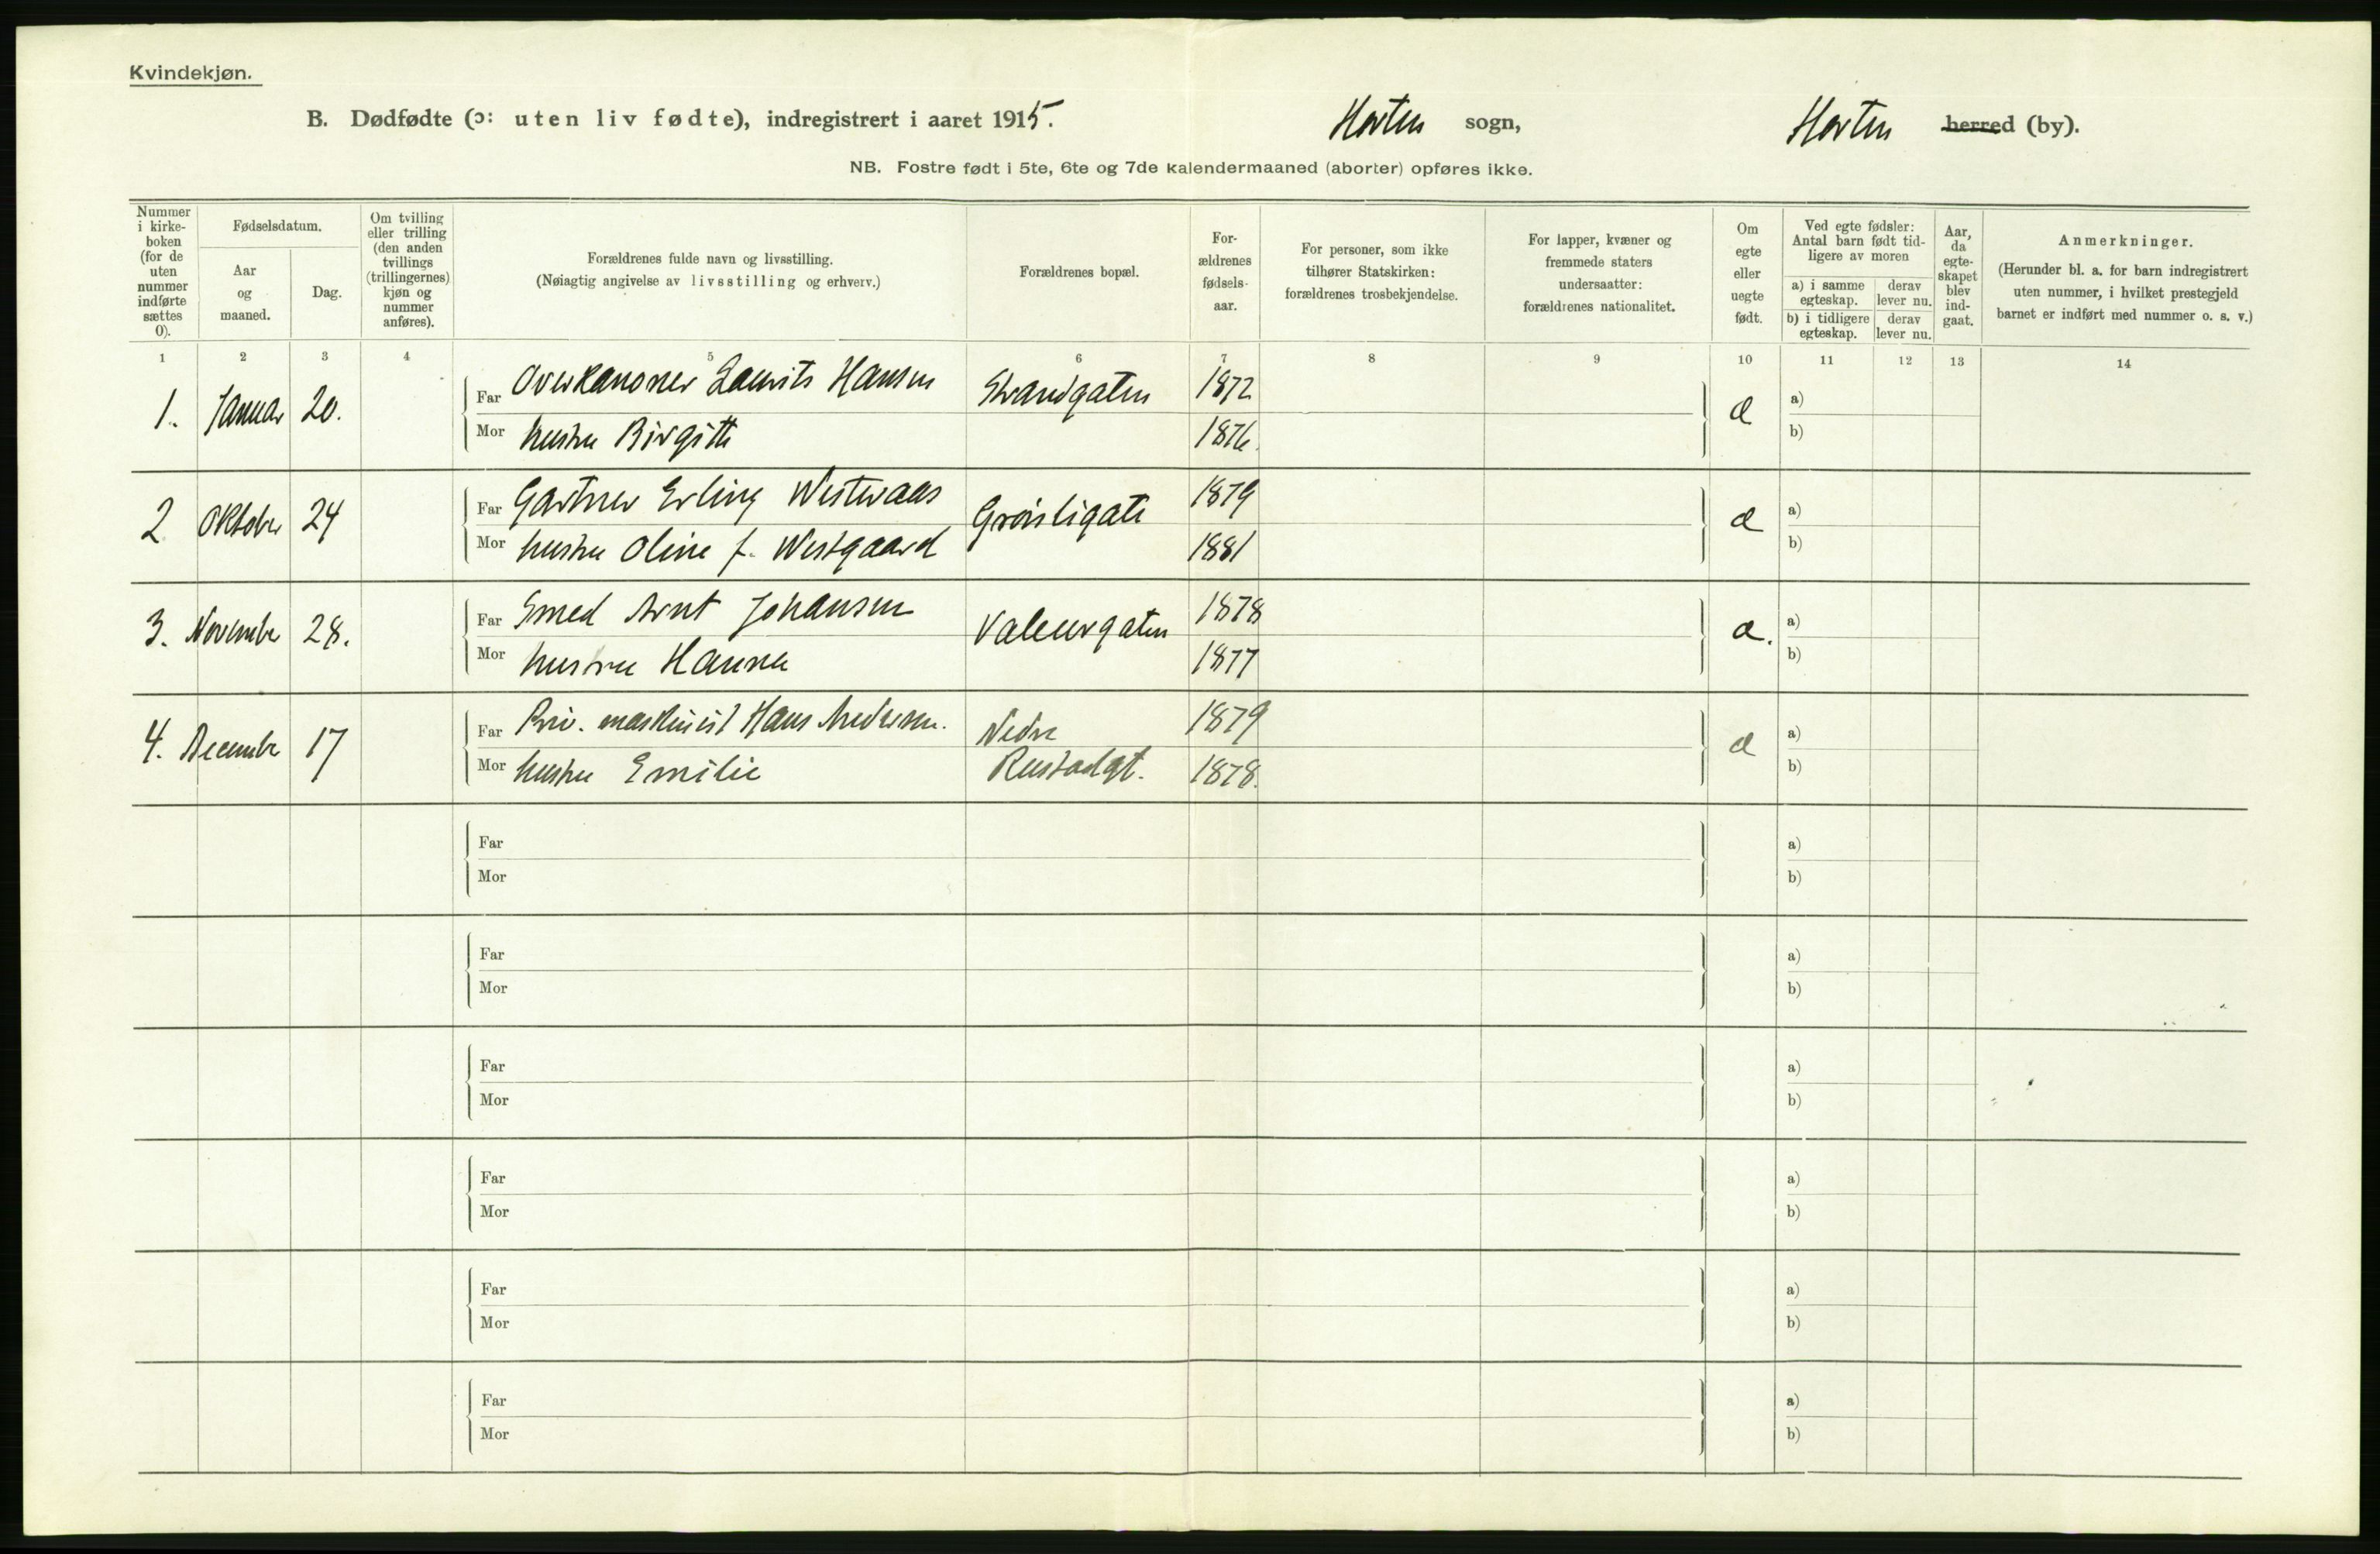 Kvindekjøn.
B. Dødfødte (ɔ: uten liv fødte), indregistrert i aaret 1915. Horten sogn, Horten herred (by).
NB. Fostre født i 5te, 6te og 7de kalendermaaned (aborter) opføres ikke.
Nummer i kirke-boken (for de uten nummer indførte sættes 0).
Fødselsdatum.
Aar og maaned.
Dag.
Om tvilling eller trilling (den anden tvillings (trillingernes) kjøn og nummer anføres).
Forældrenes fulde navn og livsstilling.
(Nøiagtig angivelse av livsstilling og erhverv.)
Forældrenes bopæl.
For-ældrenes fødsels-aar.
For personer, som ikke tilhører Statskirken: forældrenes trosbekjendelse.
For lapper, kvæner og fremmede staters undersaatter: forældrenes nationalitet.
Om egte eller uegte født.
Ved egte fødsler: Antal barn født tid-ligere av moren
a) i samme egteskap.
derav lever nu.
b) i tidligere egteskap.
derav lever nu.
Aar, da egte-skapet blev ind-gaat.
Anmerkninger.
(Herunder bl. a. for barn indregistrert uten nummer, i hvilket prestegjeld barnet er indført med nummer o. s. v.)
1 2 3 4 5 6 7 8 9 10 11 12 13 14
Far Overkanoner Laurits Hansen 1872 a)
1. Januar 20. Strandgaten
Mor hustru Birgitte 1876. b)
Far Gartner Erling Westeraas 1879 a)
2 Oktober 24 Grønligate
Mor hustru Oline f. Westgaard 1881 b)
Far Smed Arnt Johansen 1878 a)
3. November 28. Valeurgaten
Mor hustru Hanna 1877 b)
Far Priv. maskinist Hans Andersen. Nedre 1879 a)
4. December 17
Mor hustru Emilie Rustadgt. 1878. b)
Far a)
Mor b)
Far a)
Mor b)
Far a)
Mor b)
Far a)
Mor b)
Far a)
Mor b)
Far a)
Mor b)